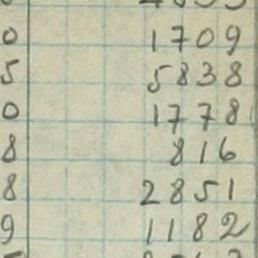 0 1709
5 5838
0 1778
8 816
8 2851
9 1182